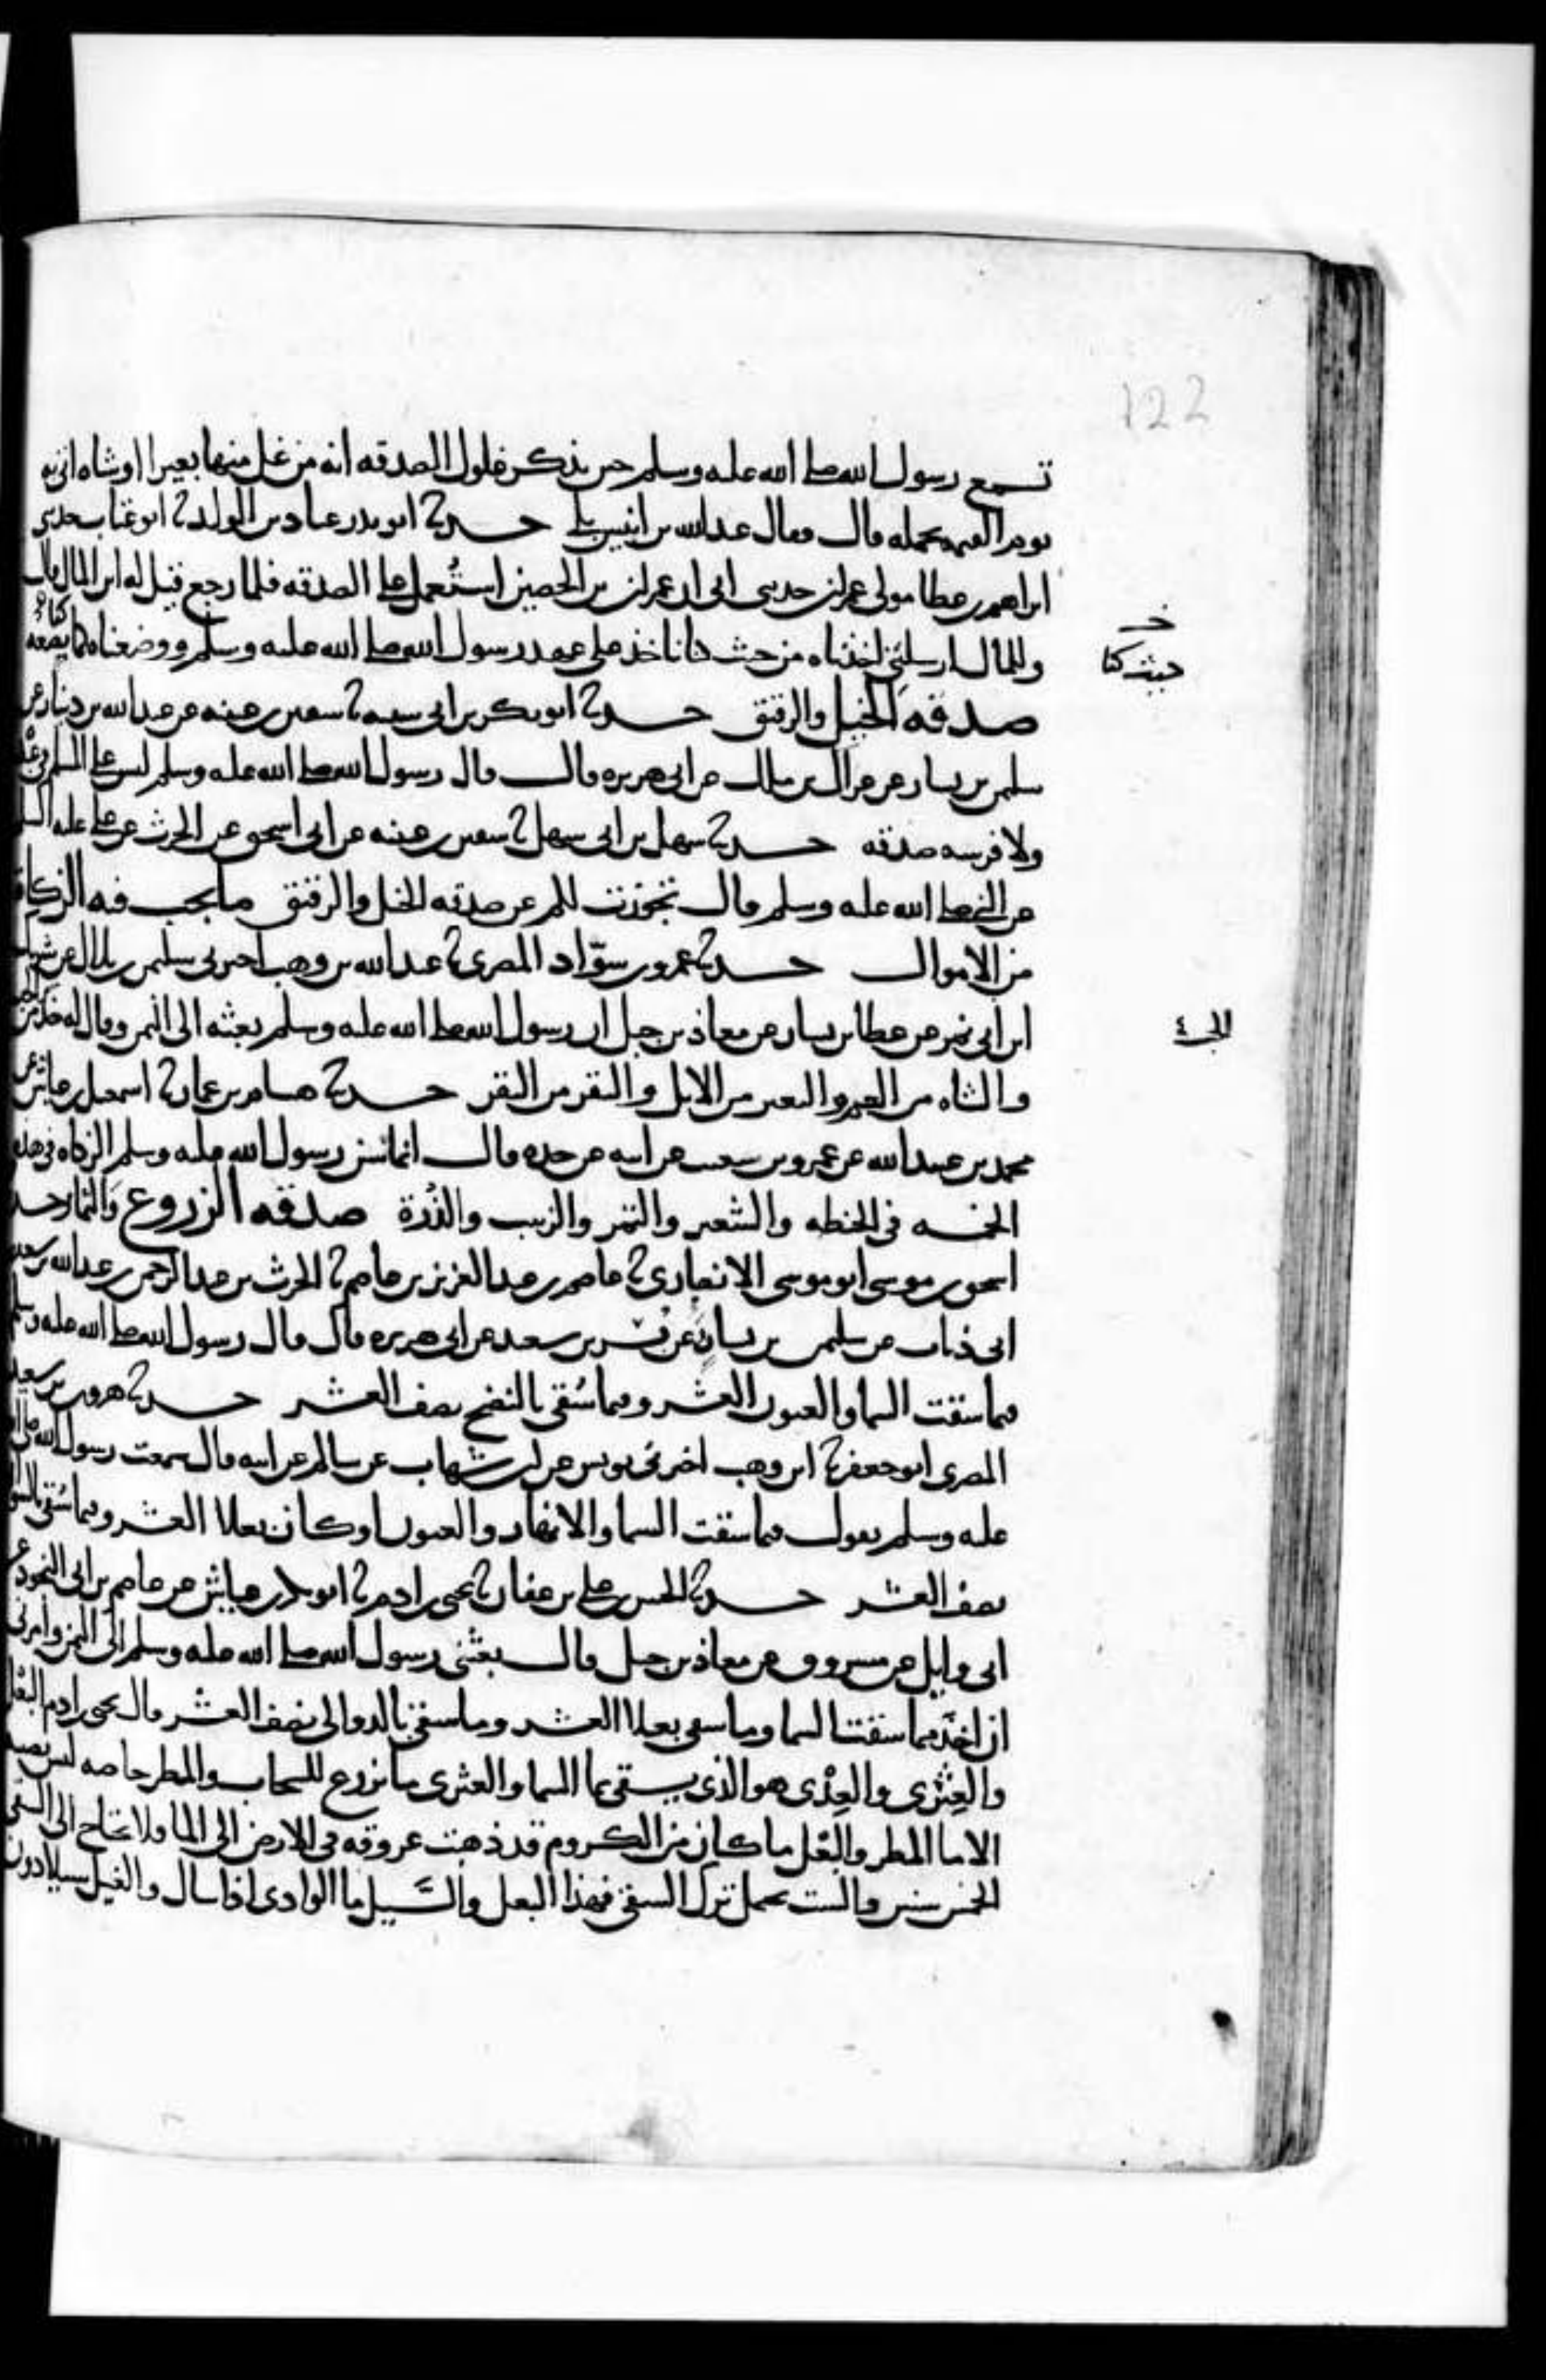 122
تسمع رسول الله صلى الله عليه وسلم حين يذكر غلول الصدقه انه من غل منها بعيرا او شاه اتى به
يوم القيمه يحمله قال فقال عبدالله بن انيس بلى حدثنا ابو بدر عباد بن الوليد ثنا ابو عتاب حدثني
ابراهيم بن عطا مولى عمران حدثني ابي ان عمران بن الحصين استُعمل على الصدقه فلما رجع قيل له اين المال قال
وللمال ارسلتني اخذناه من حيث كنا ناخذ على عهد رسول الله صلى الله عليه وسلم ووضعناه كما نضعُه
حيث كنا
صدقه الخيل والرقيق حدثنا ابو بكر بن ابي شيبه ثنا سفين بن عيينه عن عبدالله بن دينار عن
سليمن بن يسار عن عراك بن ملك عن ابي هريره قال قال رسول الله صلى الله عليه وسلم ليس على المسلم في عبده
ولا فرسه صدقه حدثنا سهل بن ابي سهل ثنا سفين بن عيينه عن ابي اسحق عن الحرث عن علي عليه السلم
عن النبي صلى الله عليه وسلم قال تجوزت لكم عن صدقه الخيل والرقيق ما يجب فيه الزكاة
من الاموال حدثنا عمرو بن سوّاد المصري ثنا عبدالله بن وهب اخبرني سليمن بن بلال عن شريك
ابن ابي نمر عن عطا بن يسار عن معاذ بن جبل ان رسول الله صلى الله عليه وسلم بعثه الى اليمن وقال له خذ
والشاه من الغنم والبعير من الابل والبقر من البقر حدثنا هشام بن عمار ثنا اسمعيل بن عياش عن
محمد بن عبيدالله عن عمرو بن شعيب عن ابيه عن جده قال انما سن رسول الله عليه وسلم الزكاه في هذه
الخمسه في الحنطه والشعير والتمر والزبيب والذُرة صدقه الزروع والثمار حدثنا
اسحق بن موسى ابو موسى الانصاري ثنا عاصم بن عبدالعزيز بن عاصم ثنا الحرث بن عبدالرحمن بن عبدالله بن سعد
ابي ذباب عن سليمن بن يسار وعن بسر بن سعيد عن ابي هريره قال قال رسول الله صلى الله عليه وسلم
فيما سقت السما والعيون العشر وفيما سُقي بالنضح نصف العشر حدثنا هرون بن سعيد
المصري ابو جعفر ثنا ابن وهب اخبرني يونس عن ابن شهاب عن سالم عن ابيه قال سمعت رسول الله صلى الله
عليه وسلم يقول فيما سقت السما والانهار والعيون او كان بعلا العشر وفيما سُقي بالسواني
نصف العشر حدثنا الحسن بن علي بن عفان ثنا يحيى بن ادم ثنا ابو بكر بن عياش عن عاصم بن ابي النجود عن
ابي وايل عن مسروق عن معاذ بن جبل قال بعثني رسول الله صلى الله عليه وسلم الى اليمن وامرني
ان اخذ مما سقت السما وما سقي بعلا العشر وما سقي بالدوالي نصف العشر قال يحيى بن ادم البعل
والعِثري والعِذْي هو الذي يسقى بما السما والعثري ما يزرع للسحاب والمطر خاصه ليس يصيبه
الا ما المطر والبعل ما كان من الكروم قد ذهبت عروقه في الارض الى الما فلا يحتاج الى السقي
الخمس سنين والست يحمل ترك السقي فهذا البعل والسَّيل ما الوادي اذا سال والغيل سيلا دون